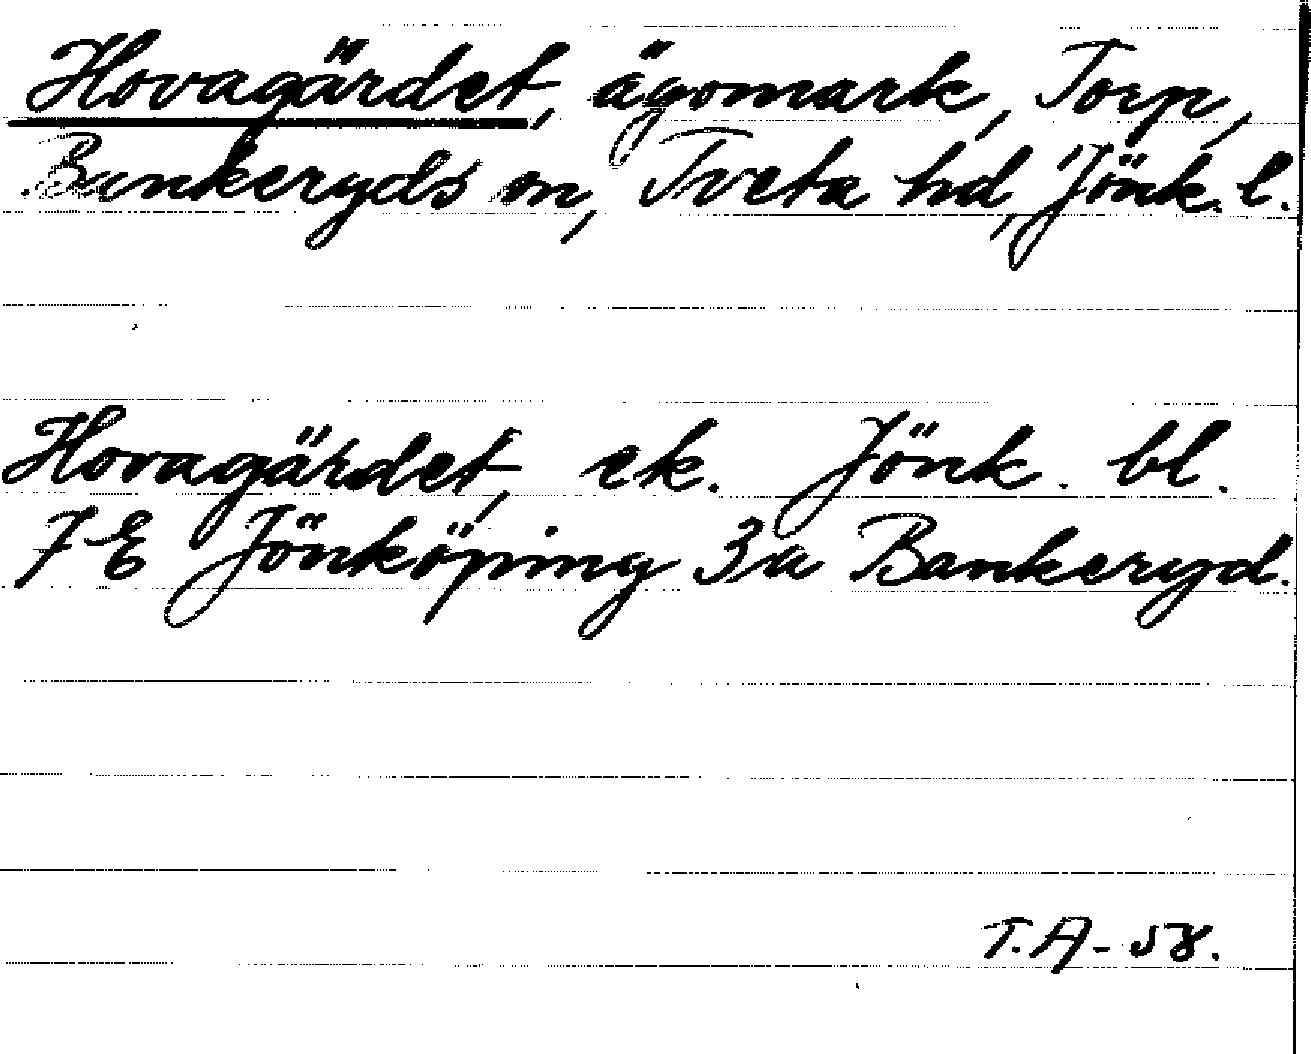 Hovagärdet, ägomark, Torp,
Bankeryds sn, Tveta hd, Jönk. l.
Hovagärdet, ek. Jönk. bl.
7 E Jönköping 3a Bankeryd.
T.A-58.